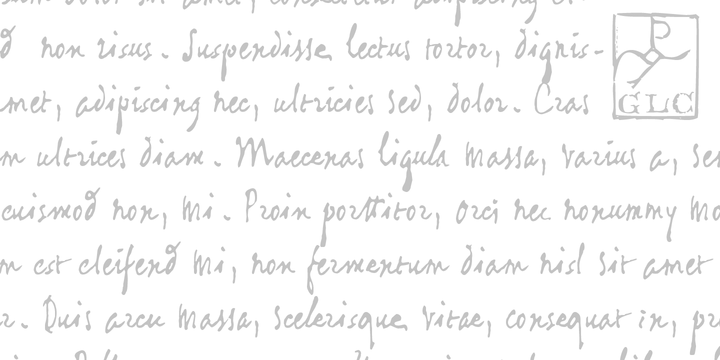 non risus. Suspendisse lectus tortor, dignis-
met, adipiscing nec, ultricies sed, dolor. Cras
GLC
m ultrices diam. Maecenas ligula massa, varius a, se
cuismod non, mi. Proin porttitor, orci nec nonummy mo
m est eleifend mi, non fermentum diam nisl sit amet
r. Duis arcu massa, scelerisque vitae, consequat in, pr